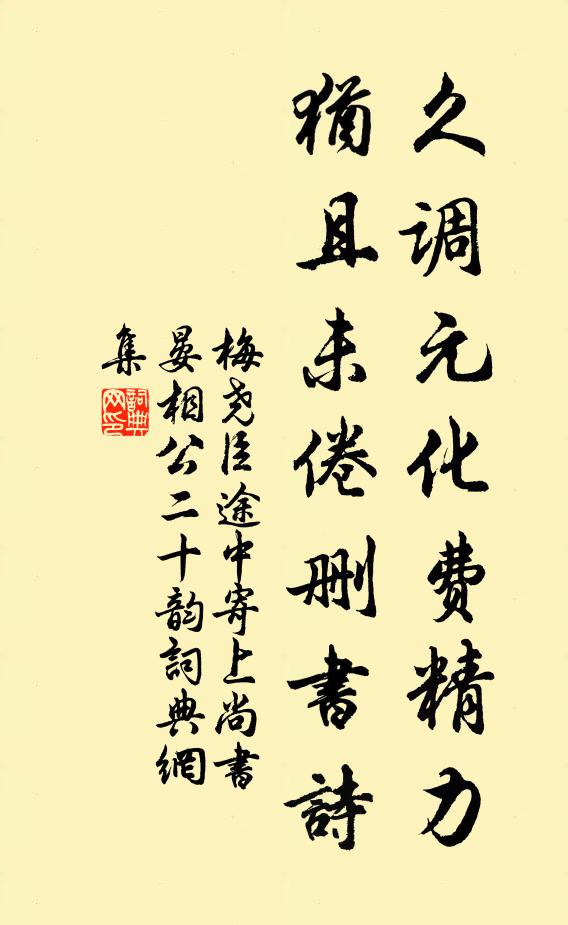 久调元化费精力
猶且未倦删書詩
梅尧臣途中寄上尚書
晏相公二十韵詞典網
集
詞典
网印